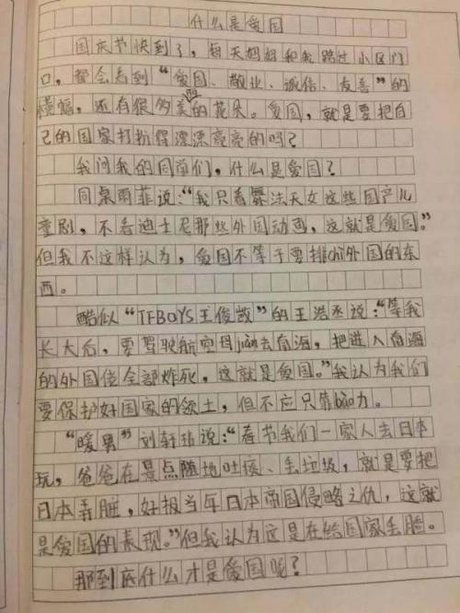 什么是爱国
国庆节快到了，每天妈妈和我路过小区门
口，都会看到“爱国、敬业、诚信、友善”的
横幅，还有很多美的花朵。爱国，就是要把自
己的国家打扮得漂漂亮亮的吗？
我问我的同学们，什么是爱国？
同桌雨菲说：“我只看舞法天女这些国产儿
童剧，不看迪士尼那些外国动画，这就是爱国。”
但我不这样认为，爱国不等于要排chì外国的东
西。
酷似“TFBOYS王俊凯”的王浩丞说：“等我
长大后，要驾驶航空母jiàn去南海，把进入南海
的外国佬全部炸死，这就是爱国。”我认为我们
要保护好国家的领土，但不应只靠bào力。
“暖男”刘轩说：“春节我们一家人去日本
玩，爸爸在景点随地吐痰、丢垃圾，就是要把
日本弄脏，好报当年日本帝国侵略之仇，这就
是爱国的表现。”但我认为这是在给国家丢脸。
那到底什么才是爱国呢？